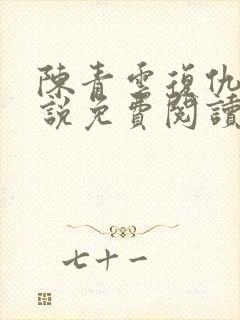 陳青雲復仇
說免費閱讀
七十一